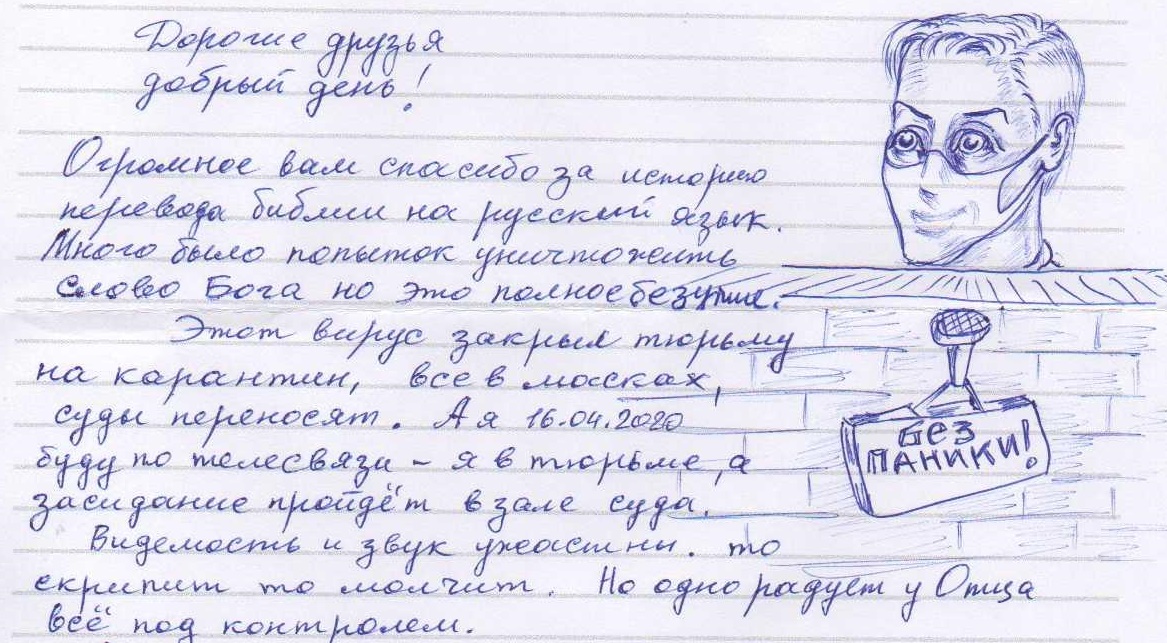 Дорогие друзья
добрый день!
Огромное вам спасибо за историю
перевода библии на русский язык.
Много было попыток уничтожить
Слово Бога но это полное безумие.
Этот вирус закрыл тюрьму
на карантин, все в масках,
суды переносят. А я 16.04.2020
буду по телесвязи - я в тюрьме, а
заседание пройдёт в зале суда.
Видемость и звук ужастны. то
скрипит то молчит. Но одно радует у Отца
всё под контролем.
БЕЗ
ПАНИКИ!